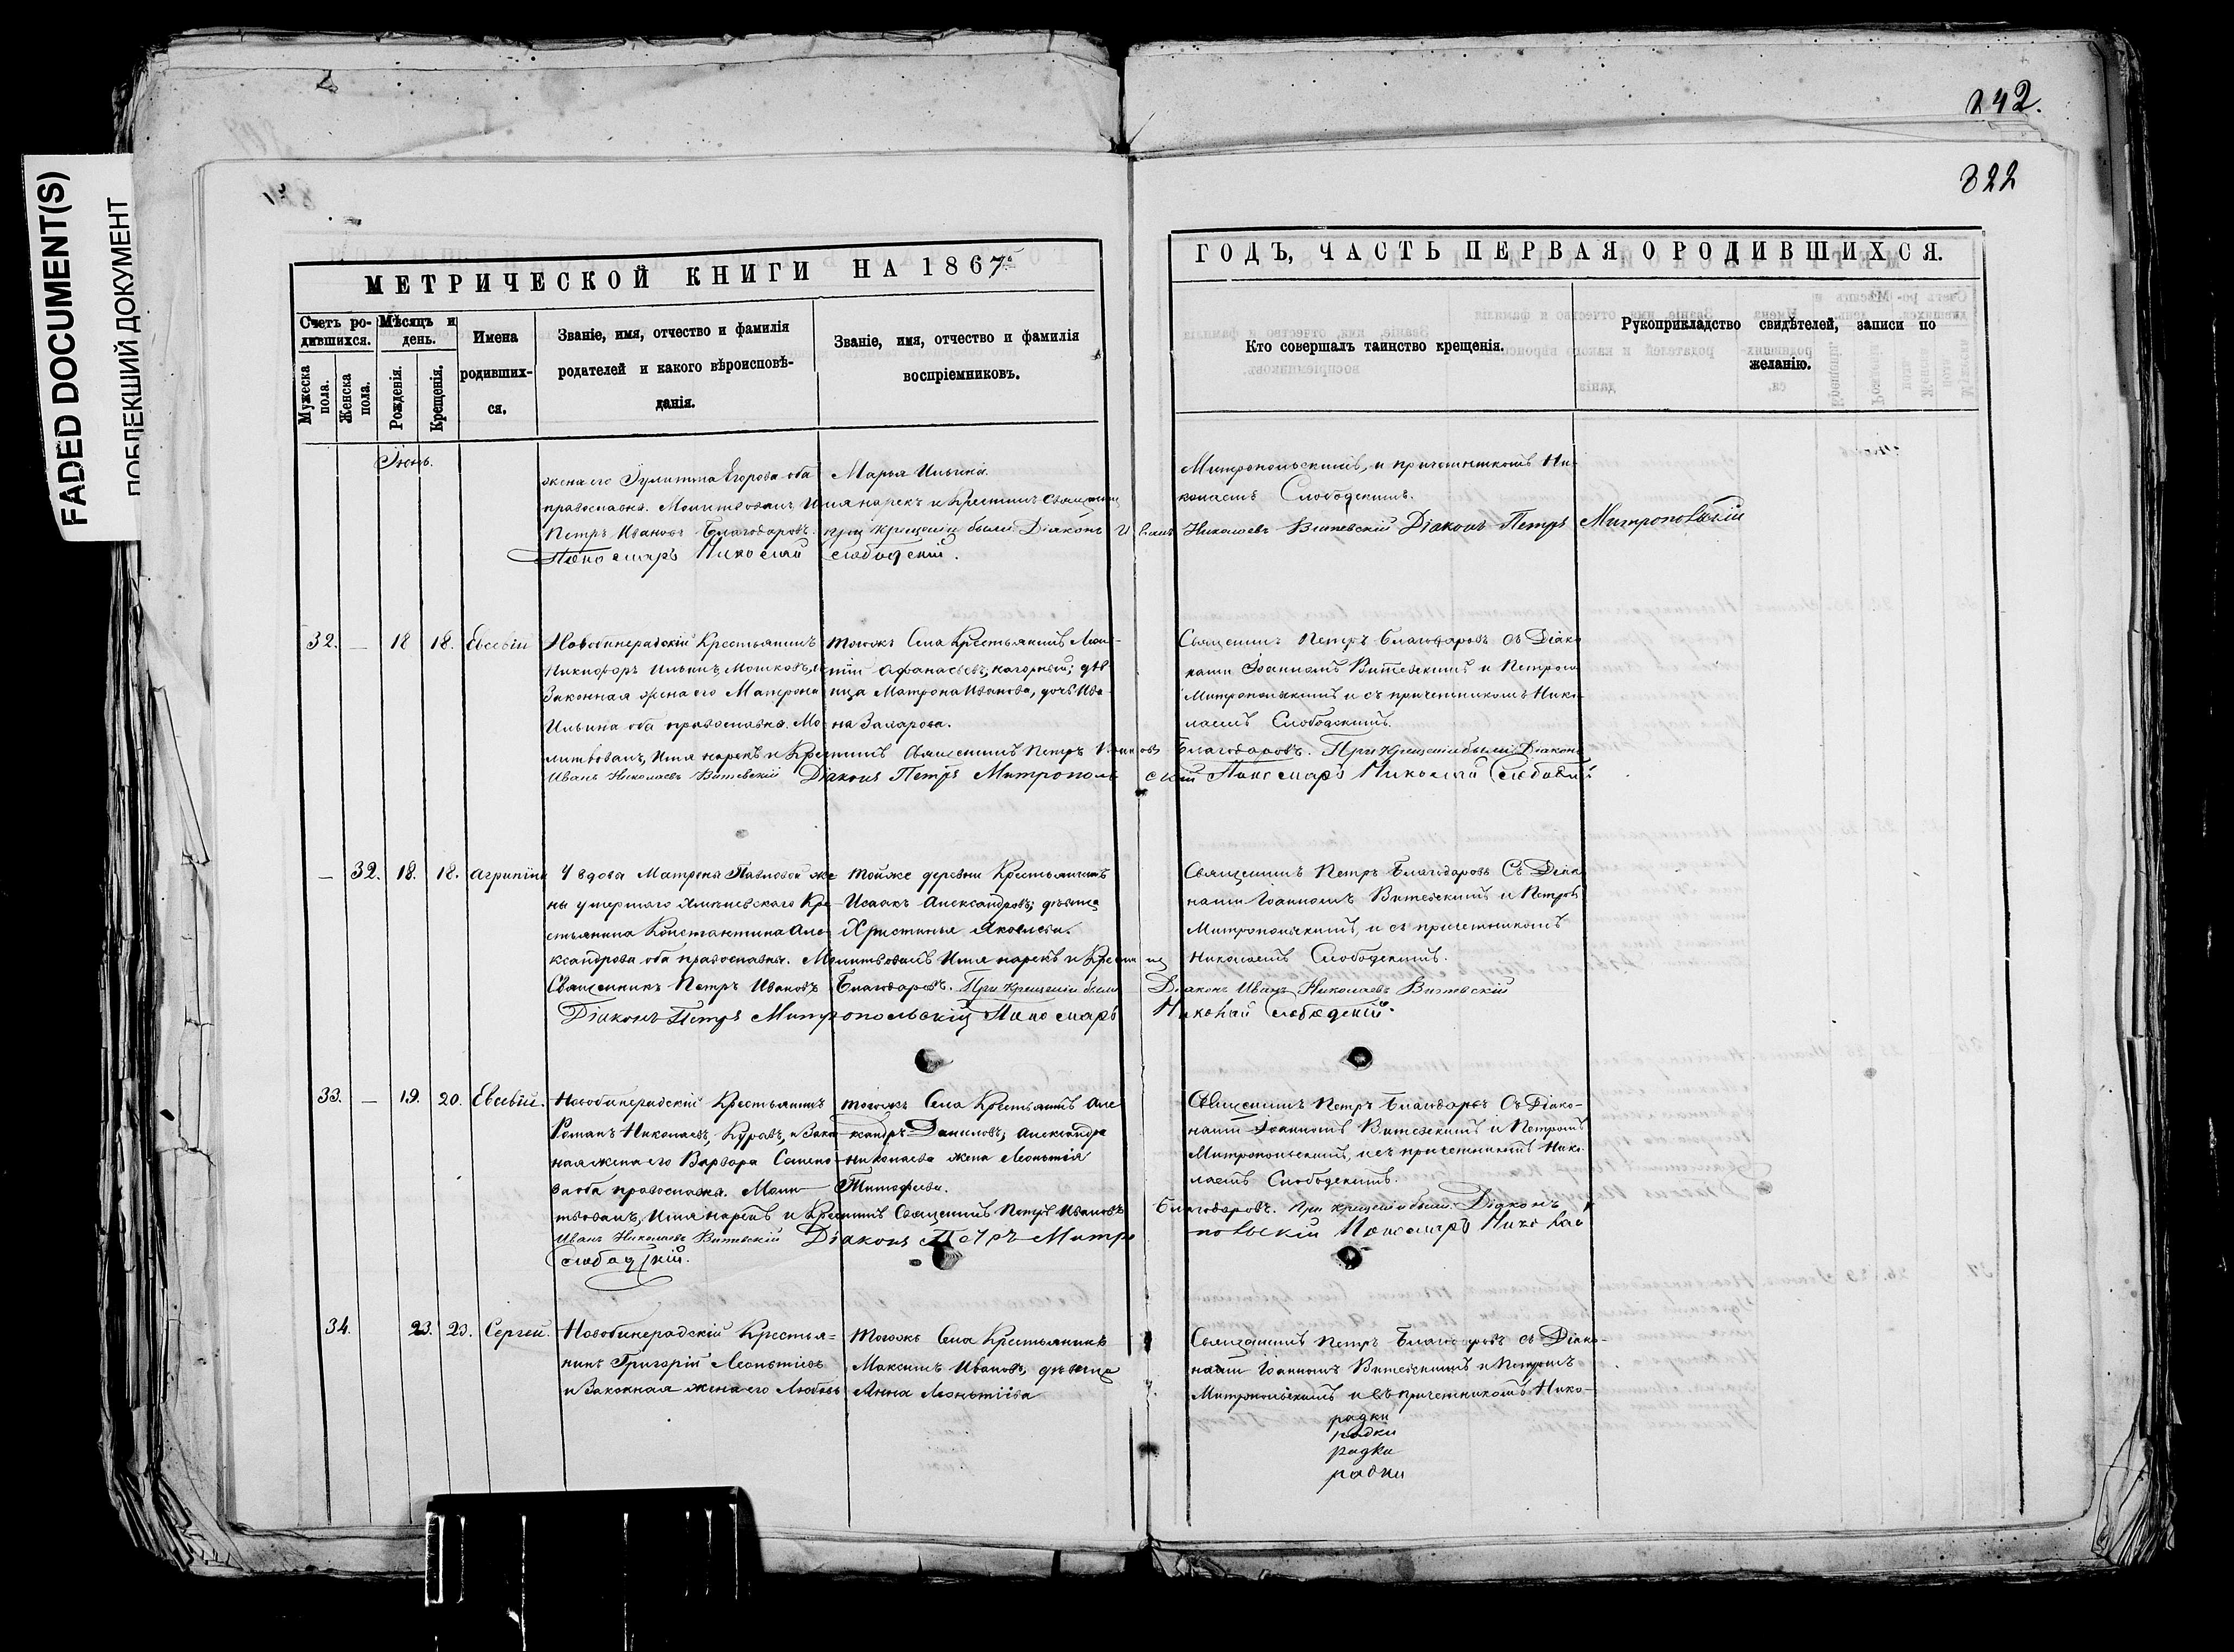 242.
322
FADED DOCUMENT(S)
ПОБЛЕКШИЙ ДОКУМЕНТ
МЕТРИЧЕСКОЙ КНИГИ НА 1867
ГОДЪ, ЧАСТЬ ПЕРВАЯ О РОДИВШИХСЯ.
Счетъ ро-
дившихся.
Мужеска
пола.
Женска
пола.
Мѣсяцъ и
день.
Рожденія.
Крещенія.
Имена
родивших-
ся.
Званіе, имя, отчество и фамилія
родителей и какого вѣроисповѣ-
данія.
Званіе, имя, отчество и фамилія
воспріемниковъ.
Кто совершалъ таинство крещенія.
Рукоприкладство свидѣтелей, записи по
желанію.
Іюнь.
жена его Іулитта Егорова оба
православна. Молитвовалъ Имя нарекъ и Крестилъ Священни
Петръ Ивановъ Благодаровъ. при крещеніи были Діаконъ Иванъ Николаевъ Витевскій Діаконъ Петръ Митропольскій
Пономарь Николай Слободскій.
Марья Ильина.
Митропольскимъ, и причетникомъ Ни-
колаемъ Слободскимъ.
32. — 18 18. Евсевій
Новобинерадскій Крестьянинъ
Никифоръ Ильинъ Мошковъ, и
Законная жена его Матрона
Ильина оба православна. Мо
литвовалъ, Имя нарекъ и Крестилъ Священникъ Петръ Ивановъ Благодаровъ. При крещеніи были Діаконъ
Иванъ Николаевъ Витевскій Діаконъ Петръ Митропольскій Пономарь Николай Слободскій
тогожъ Села Крестьянинъ Леон-
тій Афанасьевъ, Нагорный; дѣ
вица Матрона Иванова, дочь Ива-
на Захарова.
Священникъ Петръ Благодаровъ съ Діако
нами Іоанномъ Витевскимъ и Петромъ
Митропольскимъ и съ причетникомъ Нико-
лаемъ Слободскимъ.
— 32. 18. 18. Агрипина
У вдовы Матроны Павловой же
ны умершого Кре
стьянина Константина Але
ксандрова оба православны. Молитвовалъ Имя нарекъ и Крестилъ
Священникъ Петръ Ивановъ Благодаровъ. При крещеніи были Діаконъ Иванъ Николаевъ Витевскій
Діаконъ Петръ Митропольскій Пономарь Николай Слободскій.
тойже деревни Крестьянинъ
Исаакъ Александровъ; дѣвица
Христинья Яковлева.
Священникъ Петръ Благодаровъ Съ Діако
нами Іоанномъ Витевскимъ и Петромъ
Митропольскимъ, и съ причетникомъ
Николаемъ Слободскимъ.
33. — 19. 20. Евсевій.
Новобинерадскій Крестьянинъ
Романъ Николаевъ, и Закон
ная жена его Варвара
ва оба православна. Моли
твовалъ, Имя нарекъ и Крестилъ Священникъ Петръ Ивановъ Благодаровъ. При крещеніи были Діаконъ
Иванъ Николаевъ Витевскій Діаконъ Петръ Митропольскій Пономарь Николай
Слободскій.
тогожъ Села Крестьянинъ Але
ксандръ Даниловъ, Александра
Николаева жена Леонтія
Тимофеева.
Священникъ Петръ Благодаровъ Съ Діако-
нами Іоанномъ Витевскимъ и Петромъ
Митропольскимъ, и съ причетникомъ Нико-
лаемъ Слободскимъ.
34. 23. 23. Сергей.
Новобинерадскій Крестья=
нинъ Григорій Леонтіевъ
и Законная жена его Любовь
тогожъ Села Крестьянинъ
Максимъ Ивановъ, дѣвица
Анна Леонтіева
Священникъ Петръ Благодаровъ съ Діако-
нами Іоанномъ Витевскимъ и Петромъ
Митропольскимъ и съ причетникомъ Нико-
радки
радки
радки
радки